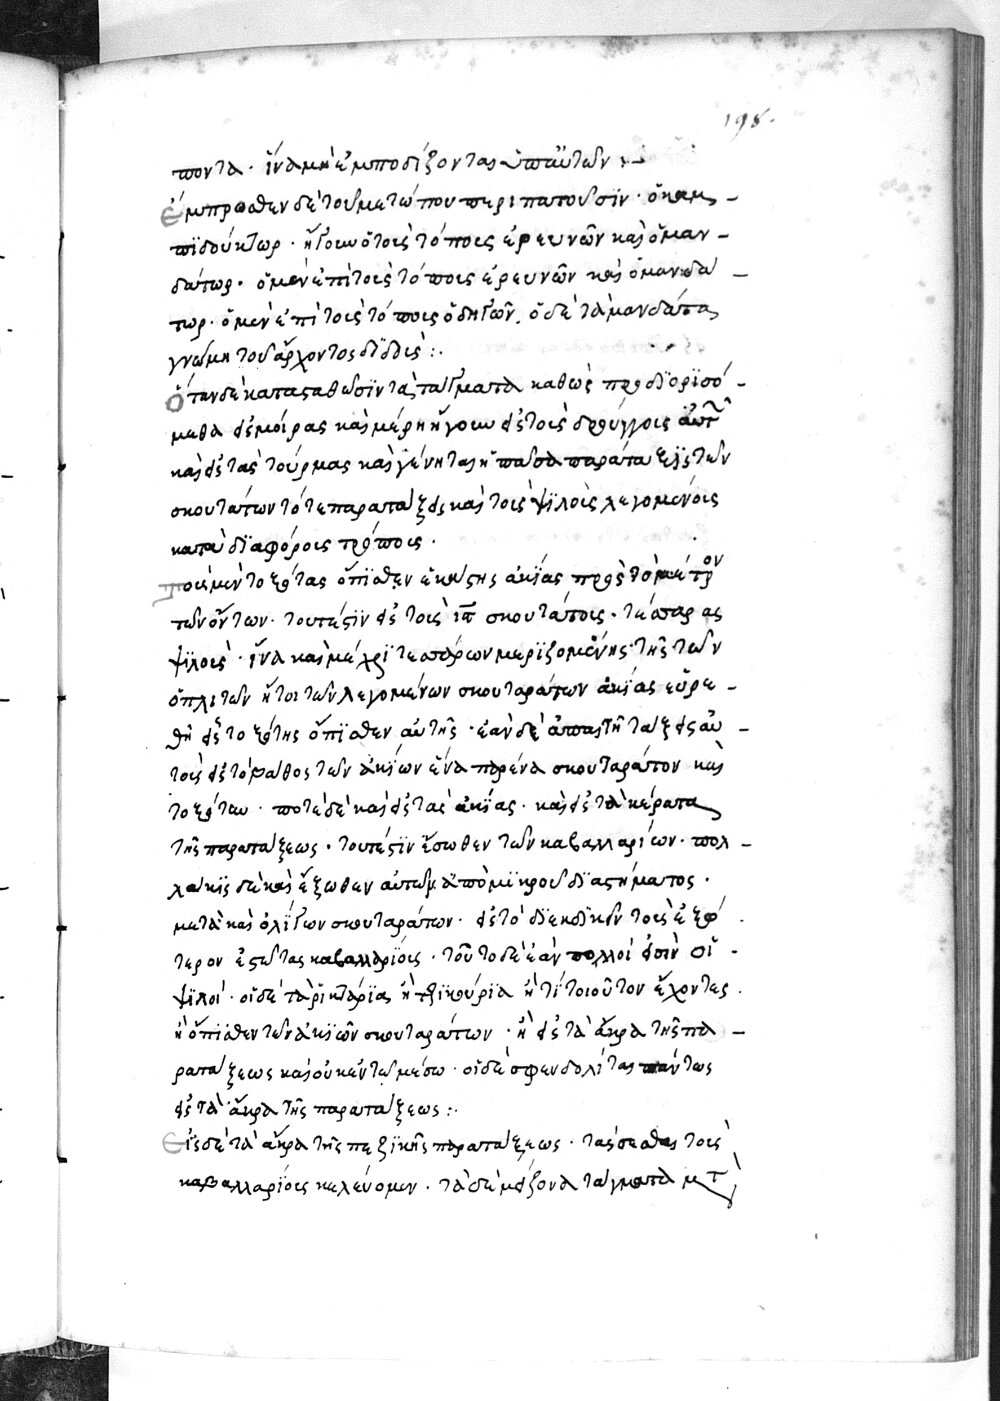 198.
ποντα· ἵνα μὴ ἐμποδίζονται ὑπ' αὐτῶν
ἔμπροσθεν δὲ τοῦ μετώπου περιπατοῦσϊν· ὁ καμ–
πϊδούκτωρ· ἤγουν ὁ τοὺς τόπους ἐρευνῶν καὶ ὁ μαν–
δάτωρ· ὁ μὲν ἐπὶ τοὺς τόπους ἐρευνῶν καὶ ὁ μανδά–
τωρ· ὁ μὲν ἐπὶ τοὺς τόπους ὁδηγῶν. ὁ δὲ τὰ μανδάτα
γνώμη τοῦ ἄρχοντος δϊδοὺς:·
ὅταν δὲ καταςαθῶσϊν τὰ τάγματα καθὼς προδϊορϊσό–
μεθα εἰς μοίρας καὶ μέρη ἤγουν εἰς τοὺς δρούγγους αὐτῶν
καὶ εἰς τὰς τούρμας καὶ γένηται ἡ πᾶσα παράταξϊς τῶν
σκουτάτων τότε παρατάξεις καὶ τοὺς ψϊλοὺς λεγομένους
κατὰ δϊαφόρους τρόπους·
ποιὲ μὲν τοξότας ὄπϊσθεν ἑκάςης ἀκίας πρὸς τὸ μέτρον
τῶν ὄντων· τουτέςϊν εἰς τοὺς ις σκουτάτους· τέσσαρας
ψϊλοὺς· ἵνα καὶ μέχρϊ τεσσάρων μερϊζομένης τῆς τῶν
ὁπλιτῶν ἤτοι τῶν λεγομένων σκουταράτων ἀκίας εὑρε–
θῆ εἷς τοξότης ὄπϊσθεν αὐτῆς· ἐὰν δὲ ἀπαιτῆ τάξεις αὐ–
τοὺς εἰς τὸ βάθος τῶν ἀκίων ἕνα παρ' ἕνα σκουταράτον καὶ
τοξότην· ποτὲ δὲ καὶ εἰς τὰς ἀκίας· καὶ εἰς τὰ κέρατα
τῆς παρατάξεως· τουτέςϊν ἔσωθεν τῶν καβαλλαρίων· πολ–
λάκϊς δὲ καὶ ἔξωθεν αὐτῶν ἀπὸ μϊκροῦ δϊαςήματος·
μετὰ καὶ ὀλΐγων σκουταράτων· εἰς τὸ δϊεκδϊκεῖν τοὺς ἐξώ
τερον ἐςῶτας καβαλλαρΐους· τοῦτο δὲ ἐὰν πολλοί εἰσὶν οἱ–
ψϊλοί· οἱ δὲ τὰ ῥϊκτάρϊα ἢ τζϊκούρϊα ἢ τί τοιοῦτον ἔχοντες·
ἢ ὄπϊσθεν τῶν ἀκϊῶν σκουταράτων· ἢ εἰς τὰ ἄκρα τῆς πα–
ρατάξεως καὶ οὐκ ἐν τῶ μέσω· οἱ δὲ σφενδολῖται πάντως
εἰς τὰ ἄκρα τῆς παρατάξεως:·
Εἰς δὲ τὰ ἄκρα τῆς πεζϊκῆς παρατάξεως· τάσσεσθαι τοὺς
καβαλλαρίους κελεύομεν· τὰ δὲ μείζονα τάγματα μετὰ